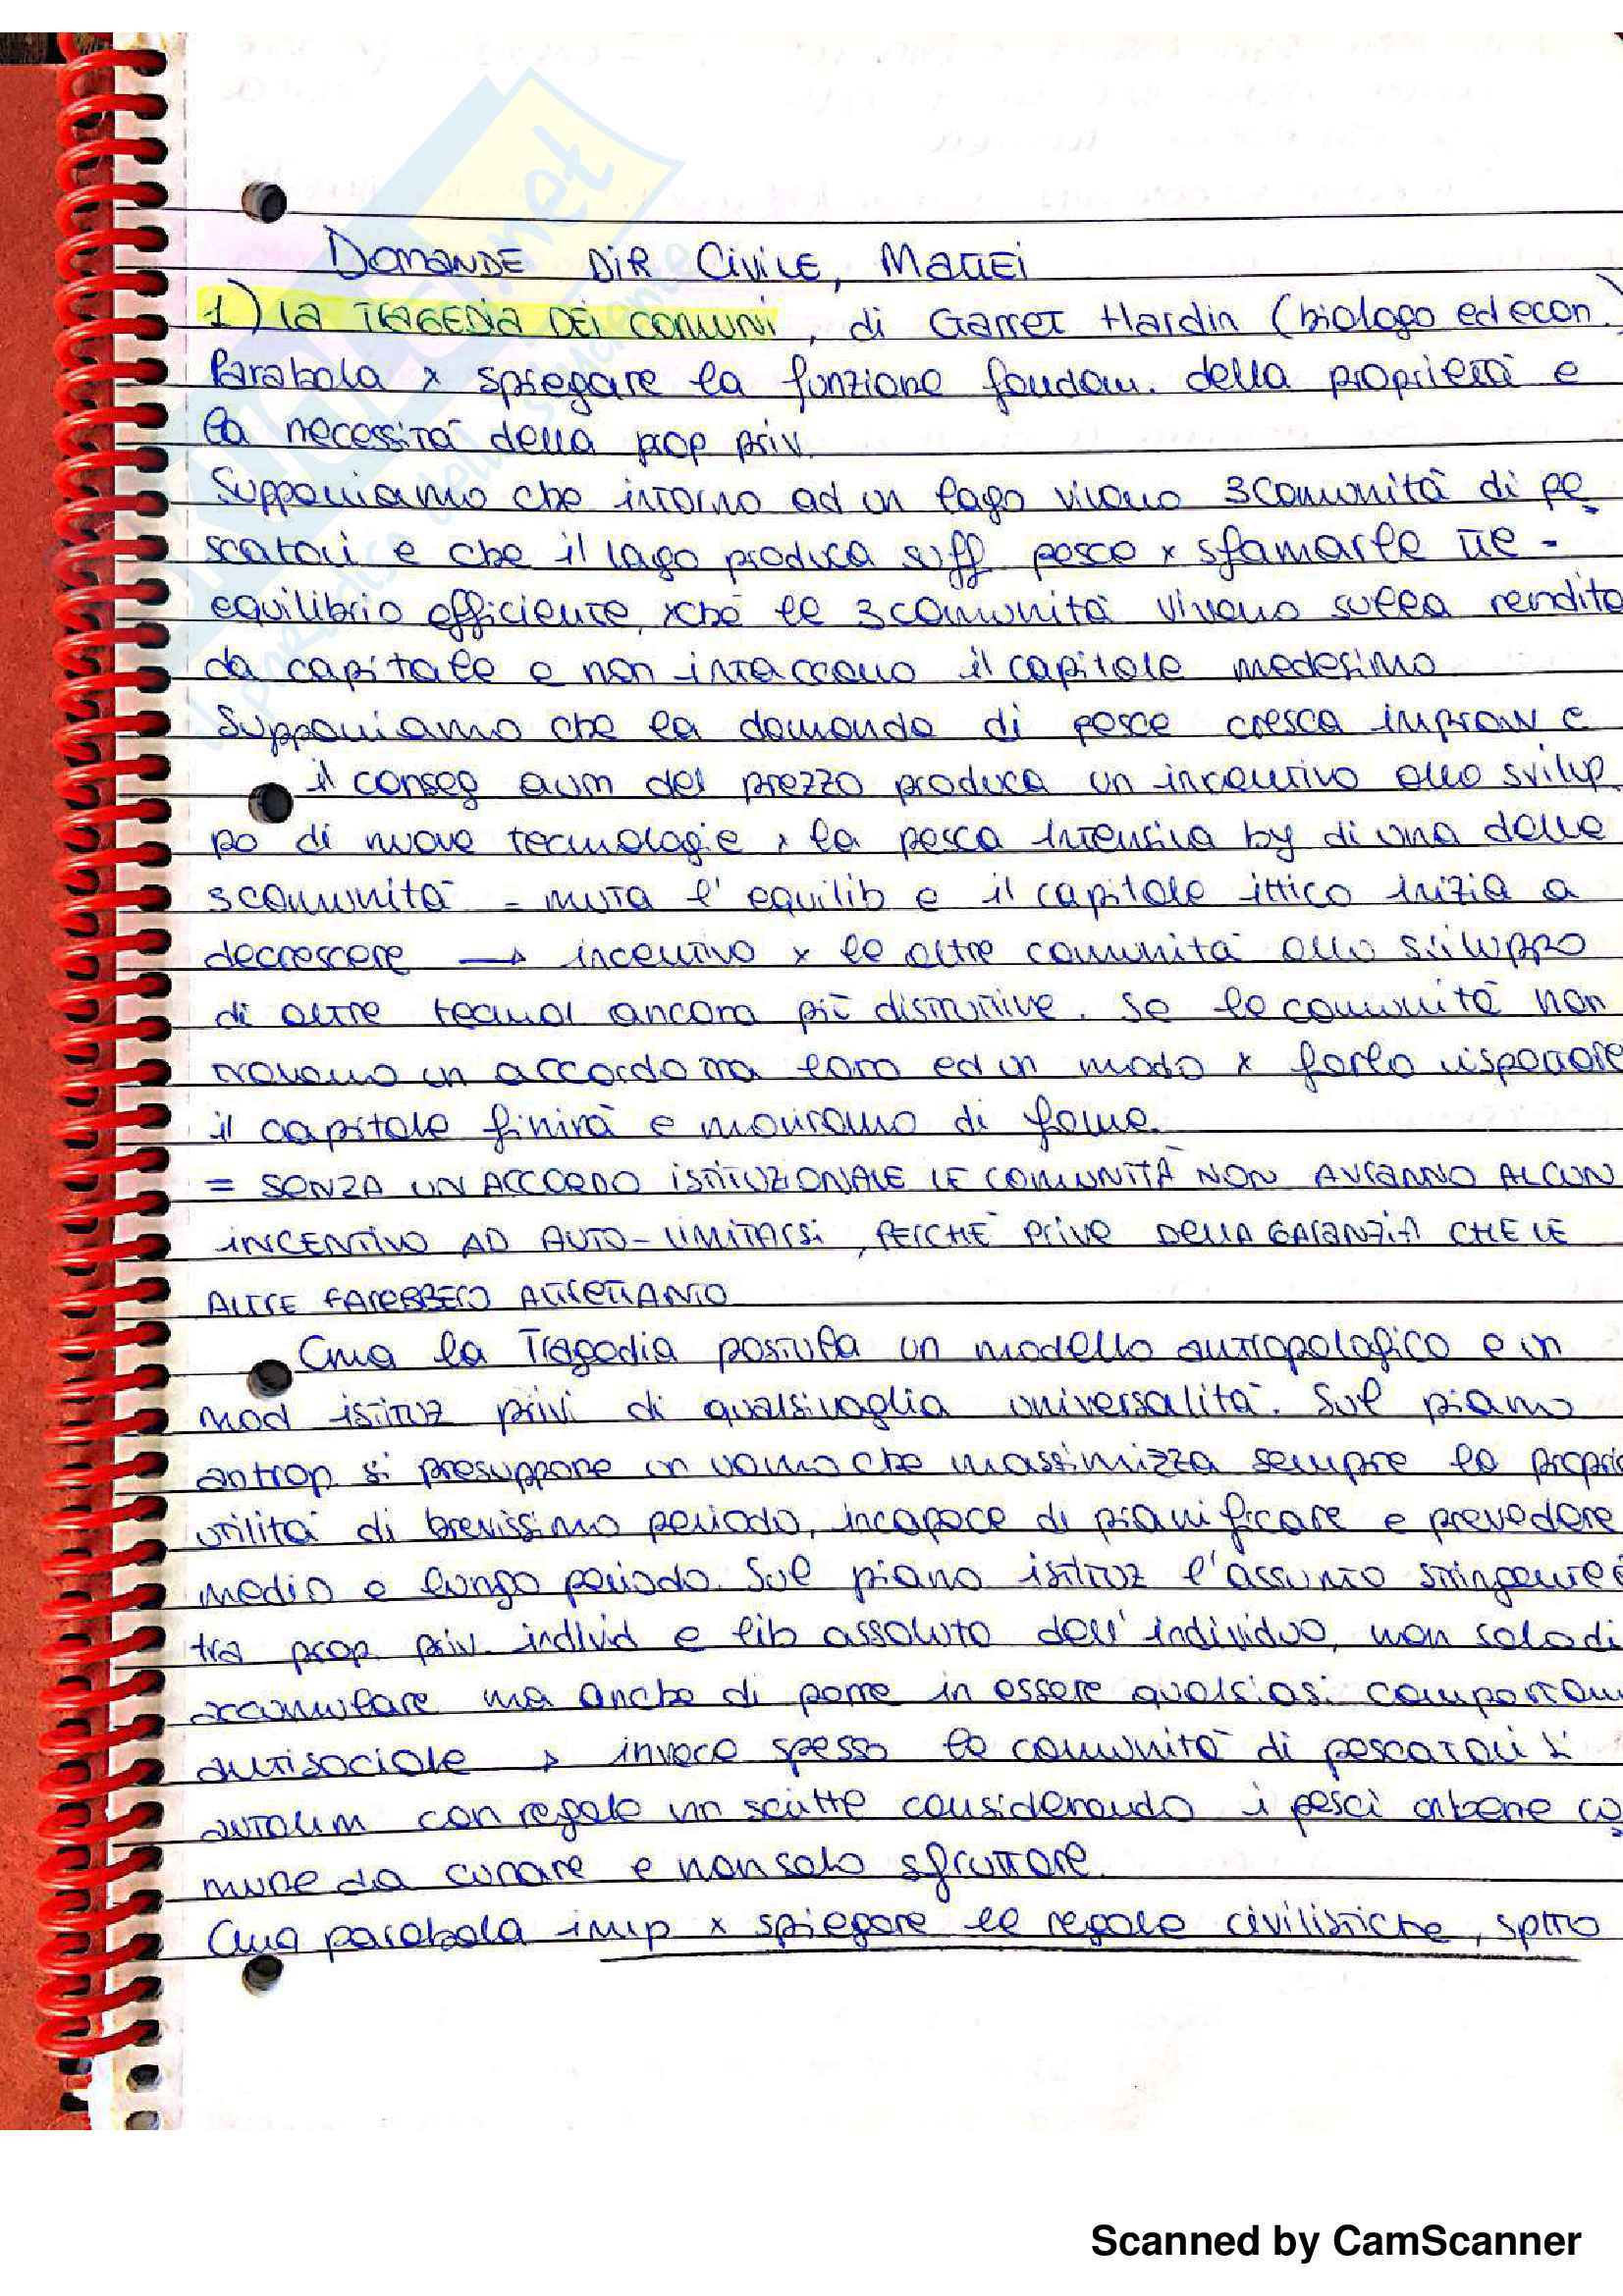 Domande Dir Civile, Mattei
1) La tragedia dei comuni, di Garret Hardin (biologo ed econ.)
Parabola x spiegare la funzione fondam. della proprietà e
la necessità della prop priv.
Supponiamo che intorno ad un lago vivono 3 comunità di pe
scatori e che il lago produca suff pesce x sfamarle tre -
equilibrio efficiente, xché le 3 comunità vivono sulla rendita
da capitale e non intaccano il capitale medesimo
Supponiamo che la domanda di pesce cresca improvv e
il conseg aum del prezzo produca un incentivo allo svilup
po di nuove tecnologie x la pesca intensiva by di una delle
3 comunità - muta l'equilib e il capitale ittico inizia a
decrescere → incentivo x le altre comunità allo sviluppo
di altre tecnol ancora più distruttive. Se le comunità non
trovano un accordo tra loro ed un modo x farlo rispettare
il capitale finirà e moriranno di fame.
= SENZA UN ACCORDO ISTITUZIONALE LE COMUNITÀ NON AVRANNO ALCUN
INCENTIVO AD AUTO-LIMITARSI, PERCHÉ PRIVE DELLA GARANZIA CHE LE
ALTRE FAREBBERO ALTRETTANTO
Cmq la Tragedia postula un modello antropologico e un
mod istituz privi di qualsivoglia universalità. Sul piano
antrop si presuppone un uomo che massimizza sempre la propria
utilità di brevissimo periodo, incapace di pianificare e prevedere
medio e lungo periodo. Sul piano istituz l'assunto stringente è
tra prop. priv. individ e lib assoluta dell'individuo, non solo di
accumulare ma anche di porre in essere qualsiasi comportam
antisociale → invece spesso le comunità di pescatori s'
autolim con regole un scritte considerando i pesci un bene co
mune da curare e non solo sfruttare.
Cmq parabola imp x spiegare le regole civilistiche, sptto
Scanned by CamScanner